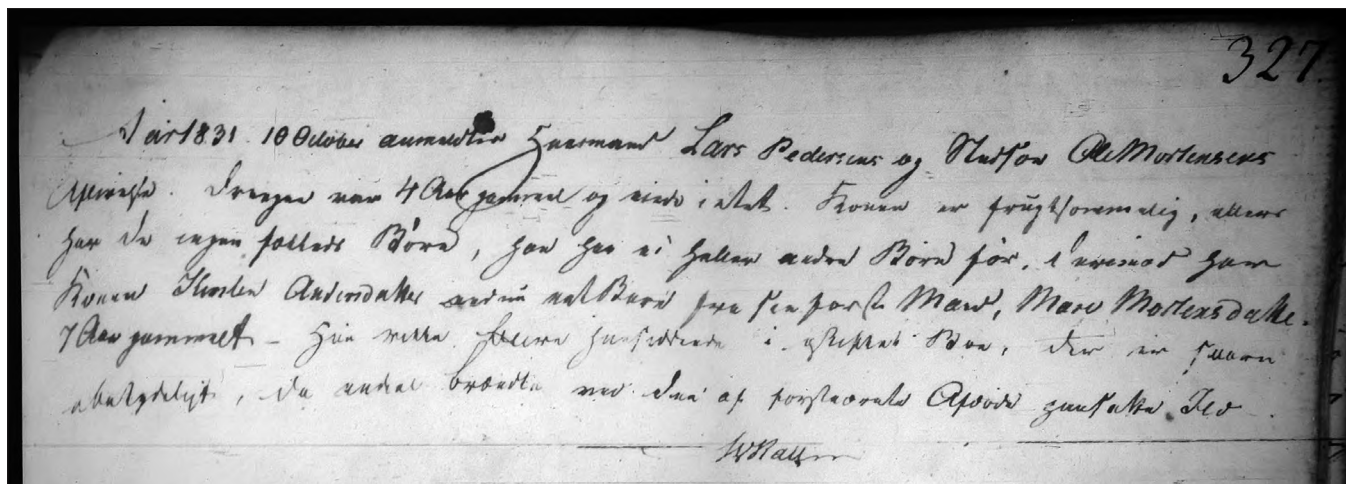 327
Aar 1831 10 October anmeldtes Huusmand Lars Pedersens og Stedsøn Ole Mortensens
Drengen var 4 Aar gammel og eiede intet. Konen er frugtsommelig, ellers
har de ingen fælleds Børn, han har ei heller andre Børn før, derimod har
Konen Andersdatter endnu eet Barn fra sin første Mand, Maren Mortensdatter
7 Aar gammelt - Hun vilde blive hensiddende i uskiftet Boe, der er saare
ubetydeligt, da endeel brændte ved den af Afdøde Ild